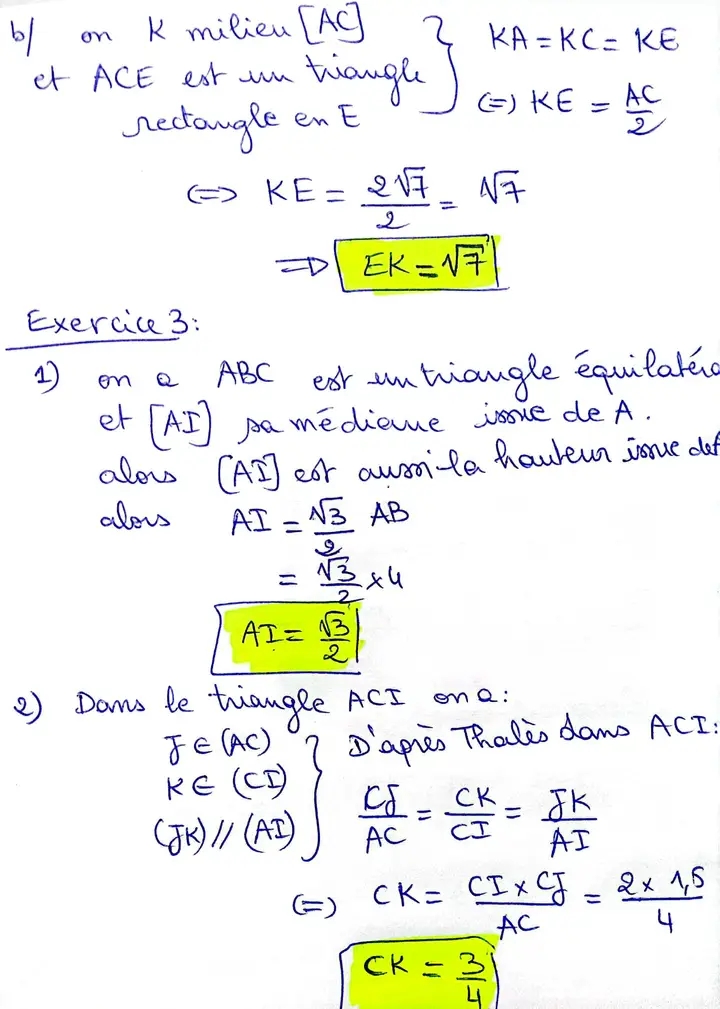 b/ on K milieu [AC]
et ACE est un triangle
rectangle en E
KA = KC = KE
(=) KE = AC/2
<=> KE = 2√7/2 = √7
=> EK = √7
Exercice 3:
1) on a ABC est un triangle équilatéra
et [AI] sa médiane issue de A.
alors [AI] est aussi la hauteur issue de
alors AI = √3/2 AB
= √3/2 × 4
AI = √3/2
2) Dans le triangle ACI on a:
J ∈ (AC)
K ∈ (CI)
(JK) // (AI)
D'après Thalès dans ACI:
CJ/AC = CK/CI = JK/AI
(=) CK = CI × CJ/AC = 2 × 1,5/4
CK = 3/4